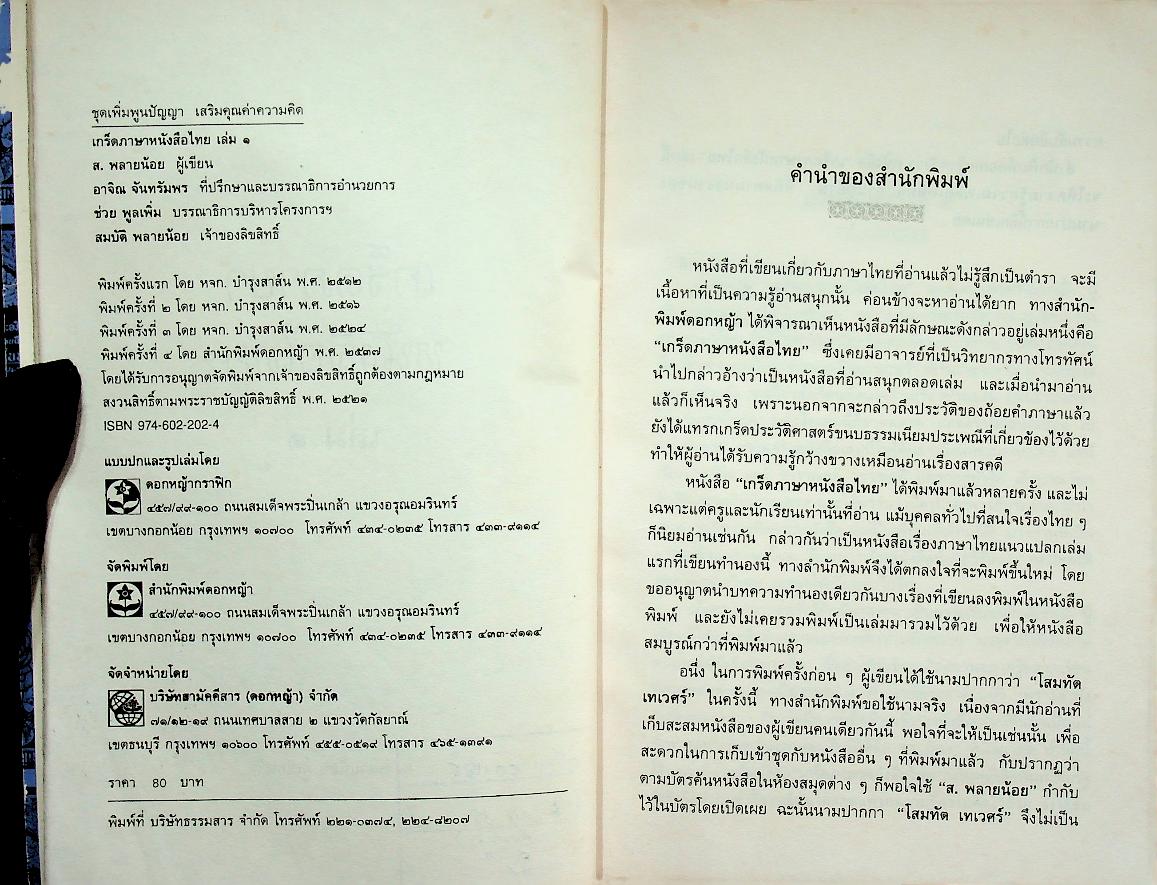 ชุดเพิ่มพูนปัญญา เสริมคุณค่าความคิด
เกร็ดภาษาหนังสือไทย เล่ม ๑
ส. พลายน้อย ผู้เขียน
อาจิณ จันทรัมพร ที่ปรึกษาและบรรณาธิการอำนวยการ
ช่วย พูลเพิ่ม บรรณาธิการบริหารโครงการฯ
สมบัติ พลายน้อย เจ้าของลิขสิทธิ์
พิมพ์ครั้งแรก โดย หจก. บำรุงสาส์น พ.ศ. ๒๕๑๒
พิมพ์ครั้งที่ ๒ โดย หจก. บำรุงสาส์น พ.ศ. ๒๕๑๖
พิมพ์ครั้งที่ ๓ โดย หจก. บำรุงสาส์น พ.ศ. ๒๕๒๔
พิมพ์ครั้งที่ ๔ โดย สำนักพิมพ์ดอกหญ้า พ.ศ. ๒๕๓๗
โดยได้รับการอนุญาตจัดพิมพ์จากเจ้าของลิขสิทธิ์ถูกต้องตามกฎหมาย
สงวนสิทธิ์ตามพระราชบัญญัติลิขสิทธิ์ พ.ศ. ๒๕๒๑
ISBN 974-602-202-4
แบบปกและรูปเล่มโดย
ดอกหญ้ากราฟิก
๔๕๗/๙๙-๑๐๐ ถนนสมเด็จพระปิ่นเกล้า แขวงอรุณอมรินทร์
เขตบางกอกน้อย กรุงเทพฯ ๑๐๗๐๐ โทรศัพท์ ๔๓๔-๐๒๓๕ โทรสาร ๔๓๓-๙๑๑๔
จัดพิมพ์โดย
สำนักพิมพ์ดอกหญ้า
๔๕๗/๙๙-๑๐๐ ถนนสมเด็จพระปิ่นเกล้า แขวงอรุณอมรินทร์
เขตบางกอกน้อย กรุงเทพฯ ๑๐๗๐๐ โทรศัพท์ ๔๓๔-๐๒๓๕ โทรสาร ๔๓๓-๙๑๑๔
จัดจำหน่ายโดย
บริษัทสามัคคีสาร (ดอกหญ้า) จำกัด
๗๑/๑๒-๑๙ ถนนเทศบาลสาย ๒ แขวงวัดกัลยาณ์
เขตธนบุรี กรุงเทพฯ ๑๐๖๐๐ โทรศัพท์ ๔๕๕-๐๕๑๙ โทรสาร ๔๖๕-๑๓๙๑
ราคา 80 บาท
พิมพ์ที่ บริษัทธรรมสาร จำกัด โทรศัพท์ ๒๒๑-๐๓๗๔, ๒๒๔-๘๒๐๗
คำนำของสำนักพิมพ์
หนังสือที่เขียนเกี่ยวกับภาษาไทยที่อ่านแล้วไม่รู้สึกเป็นตำรา จะมี
เนื้อหาที่เป็นความรู้อ่านสนุกนั้น ค่อนข้างจะหาอ่านได้ยาก ทางสำนัก-
พิมพ์ดอกหญ้า ได้พิจารณาเห็นหนังสือที่มีลักษณะดังกล่าวอยู่เล่มหนึ่งคือ
“เกร็ดภาษาหนังสือไทย” ซึ่งเคยมีอาจารย์ที่เป็นวิทยากรทางโทรทัศน์
นำไปกล่าวอ้างว่าเป็นหนังสือที่อ่านสนุกตลอดเล่ม และเมื่อนำมาอ่าน
แล้วก็เห็นจริง เพราะนอกจากจะกล่าวถึงประวัติของถ้อยคำภาษาแล้ว
ยังได้แทรกเกร็ดประวัติศาสตร์ขนบธรรมเนียมประเพณีที่เกี่ยวข้องไว้ด้วย
ทำให้ผู้อ่านได้รับความรู้กว้างขวางเหมือนอ่านเรื่องสารคดี
หนังสือ “เกร็ดภาษาหนังสือไทย” ได้พิมพ์มาแล้วหลายครั้ง และไม่
เฉพาะแต่ครูและนักเรียนเท่านั้นที่อ่าน แม้บุคคลทั่วไปที่สนใจเรื่องไทย ๆ
ก็นิยมอ่านเช่นกัน กล่าวกันว่าเป็นหนังสือเรื่องภาษาไทยแนวแปลกเล่ม
แรกที่เขียนทำนองนี้ ทางสำนักพิมพ์จึงได้ตกลงใจที่จะพิมพ์ขึ้นใหม่ โดย
ขออนุญาตนำบทความทำนองเดียวกันบางเรื่องที่เขียนลงพิมพ์ในหนังสือ
พิมพ์ และยังไม่เคยรวมพิมพ์เป็นเล่มมารวมไว้ด้วย เพื่อให้หนังสือ
สมบูรณ์กว่าที่พิมพ์มาแล้ว
อนึ่ง ในการพิมพ์ครั้งก่อน ๆ ผู้เขียนได้ใช้นามปากกาว่า “โสมทัต
เทเวศร์” ในครั้งนี้ ทางสำนักพิมพ์ขอใช้นามจริง เนื่องจากมีนักอ่านที่
เก็บสะสมหนังสือของผู้เขียนคนเดียวกันนี้ พอใจที่จะให้เป็นเช่นนั้น เพื่อ
สะดวกในการเก็บเข้าชุดกับหนังสืออื่น ๆ ที่พิมพ์มาแล้ว กับปรากฏว่า
ตามบัตรค้นหนังสือในห้องสมุดต่าง ๆ ก็พอใจใช้ “ส. พลายน้อย” กำกับ
ไว้ในบัตรโดยเปิดเผย ฉะนั้นนามปากกา “โสมทัต เทเวศร์” จึงไม่เป็น